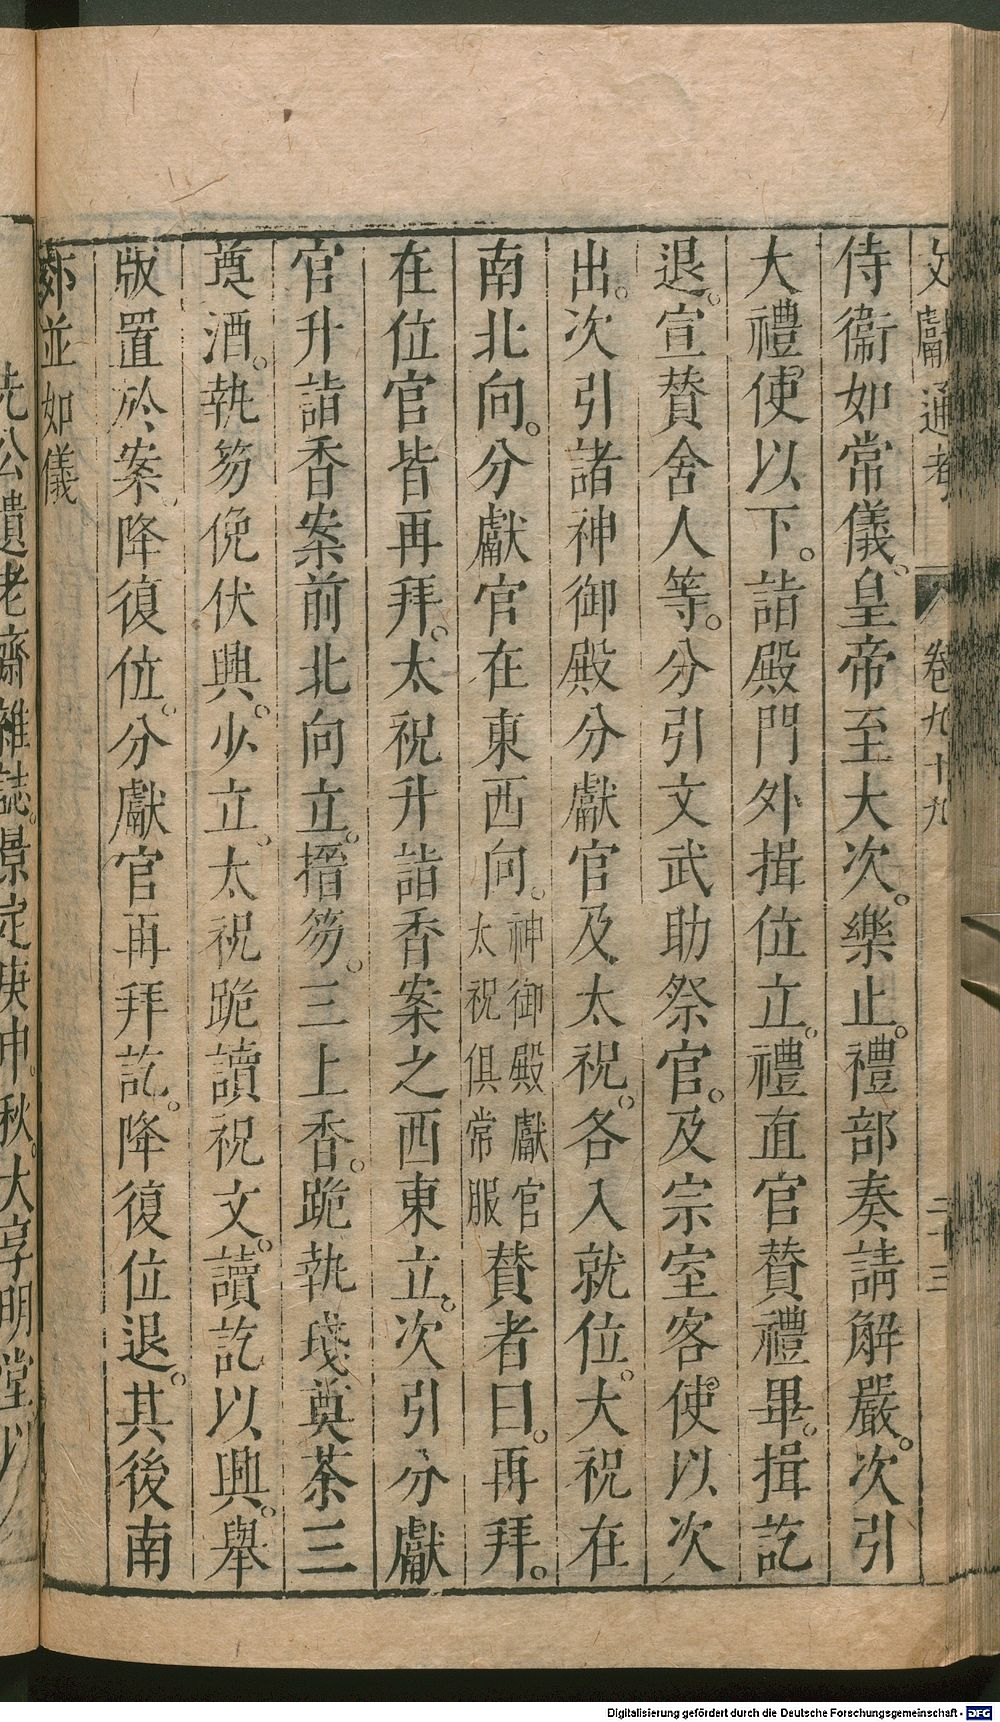 文獻通考 卷九十九 二十三
侍衞如常儀。皇帝至大次。樂止。禮部奏請解嚴。次引
大禮使以下。詣殿門外揖位立。禮直官贊禮畢。揖訖
退。宣贊舍人等。分引文武助祭官。及宗室客使以次
出。次引諸神御殿分獻官及太祝。各入就位。大祝在
南北向。分獻官在東西向。神御殿獻官太祝俱常服贊者曰。再拜。
在位官皆再拜。太祝升詣香案之西東立。次引分獻
官升詣香案前北向立。搢笏。三上香。跪執琖奠茶三
奠酒。執笏俛伏興。少立。太祝跪讀祝文。讀訖以興。舉
版置於案。降復位。分獻官再拜訖。降復位退。其後南
郊並如儀
先公遺老齋雜誌。景定庚申。秋。大享明堂以
Digitalisierung gefördert durch die Deutsche Forschungsgemeinschaft - DFG